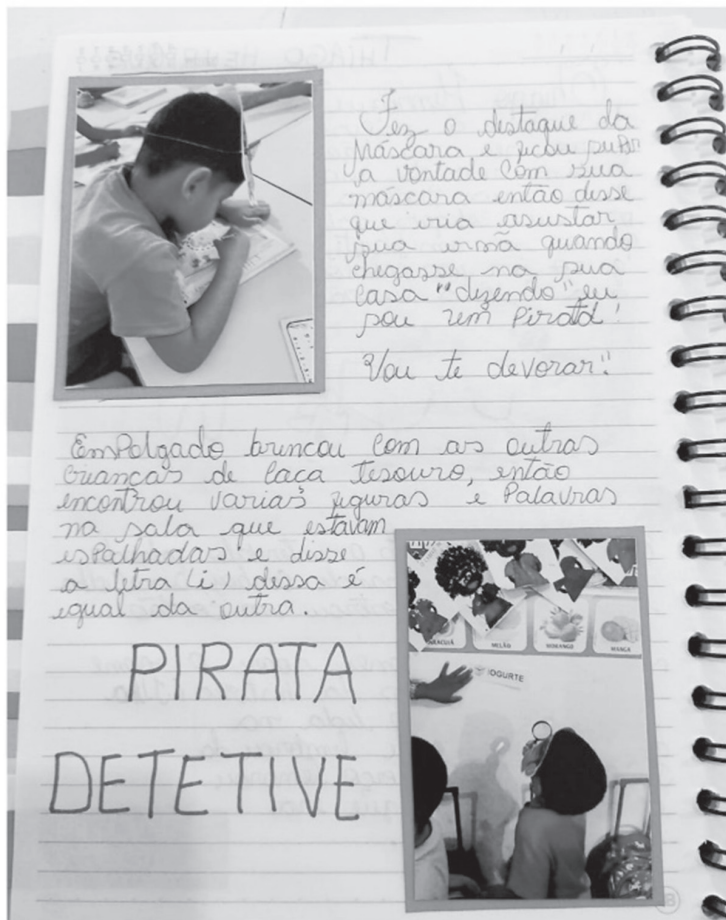 Fez o destaque da
Máscara e ficou super
a vontade com sua
máscara então disse
que iria asustar
sua irmã quando
chegasse na sua
casa "dizendo" eu
sou um Pirata!
"Vou te devorar!"
EmPolgado brincou com as outras
crianças de caça tesouro, então
encontrou varias figuras e Palavras
na sala que estavam
esPalhadas e disse
a letra (i) dessa é
igual da outra.
PIRATA
DETETIVE
MELÃO
MORANGO
IOGURTE